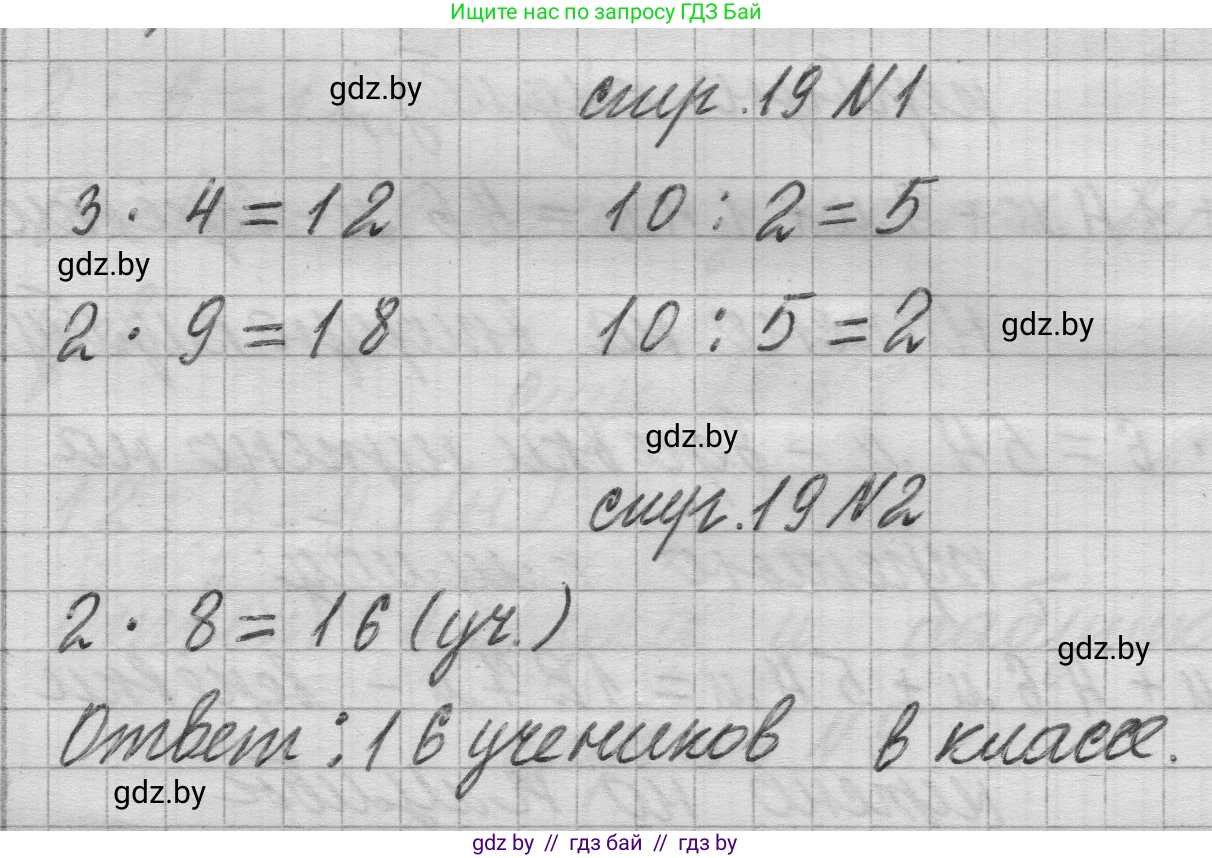 Ищите нас по запросу ГДЗ Бай
gdz.by
стр. 19 N1
3 · 4 = 12 10 : 2 = 5
gdz.by
2 · 9 = 18 10 : 5 = 2
gdz.by
gdz.by
стр. 19 N2
2 · 8 = 16 (уч.)
gdz.by
Ответ: 16 учеников в классе.
gdz.by
gdz.by // гдз бай // гдз by